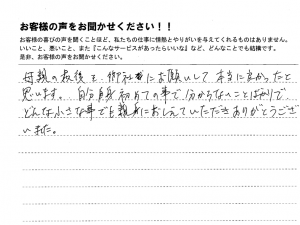 お客様の声をお聞かせください！！
お客様の喜びの声を聞くことほど、私たちの仕事に情熱とやりがいを与えてくれるものはありません。
いいこと、悪いこと、また『こんなサービスがあったらいいな』など、どんなことでも結構です。
是非、お客様の声をお聞かせください。
母親の最後を御社にお願いして本当に良かったと
思います。自分自身初めての事で分からないことばかりで
どんな小さな事でも親身におしえていただきありがとうござ
いました。